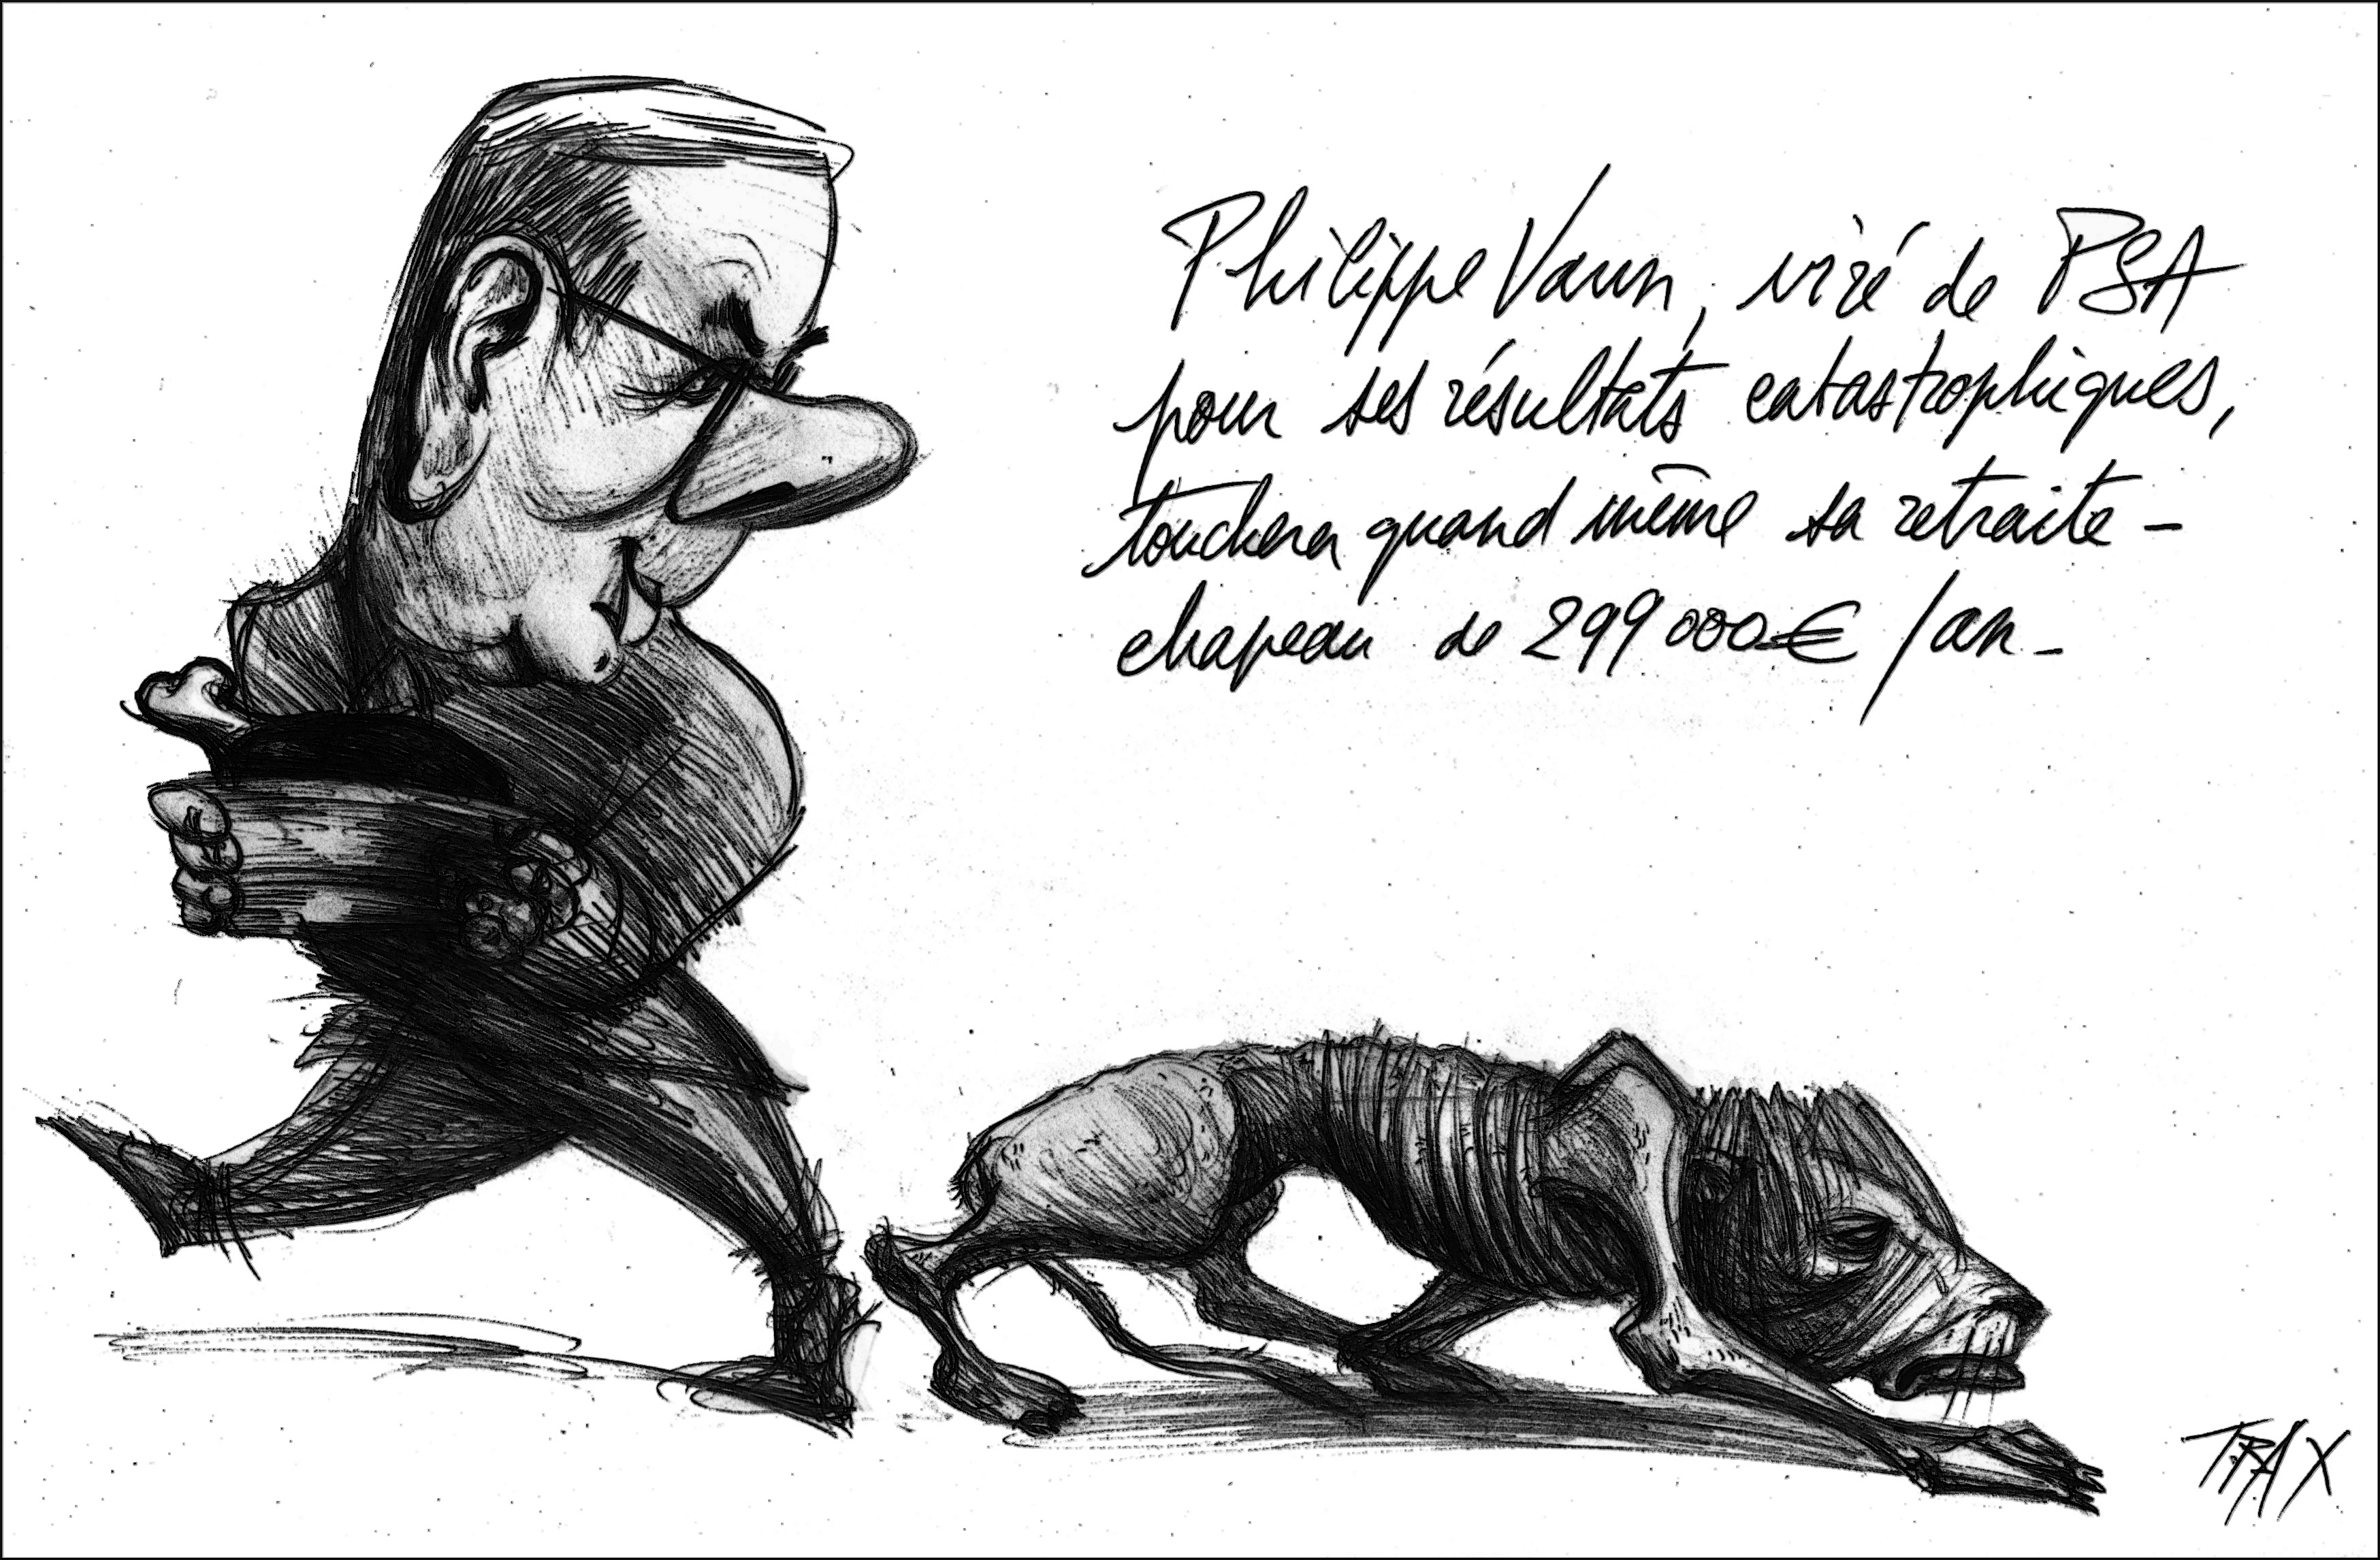 Philippe Varin, viré de PSA
pour ses résultats catastrophiques,
touchera quand même sa retraite-
chapeau de 299 000 € /an_
TRAX